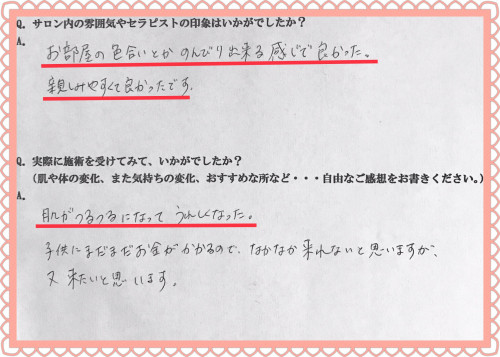 Q. サロン内の雰囲気やセラピストの印象はいかがでしたか？
A.
お部屋の色合いとか のんびり出来る感じで良かった。
親しみやすくて良かったです.
Q. 実際に施術を受けてみて、いかがでしたか？
（肌や体の変化、また気持ちの変化、おすすめな所など・・・自由なご感想をお書きください。）
A.
肌がつるつるになって うれしくなった。
子供にまだまだお金がかかるので、なかなか来れないと思いますが、
又 来たいと思います。